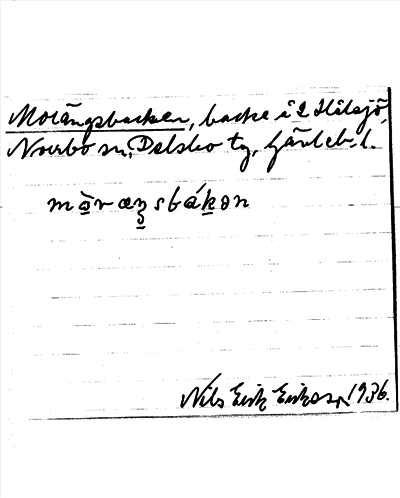 Morängsbacken, backe i 2 Hålsjö,
Norrbo sn, Delsbo tg, Gävleb. l.
mɷ̀ràŋsbákən
Nils Erik Erikson 1936.